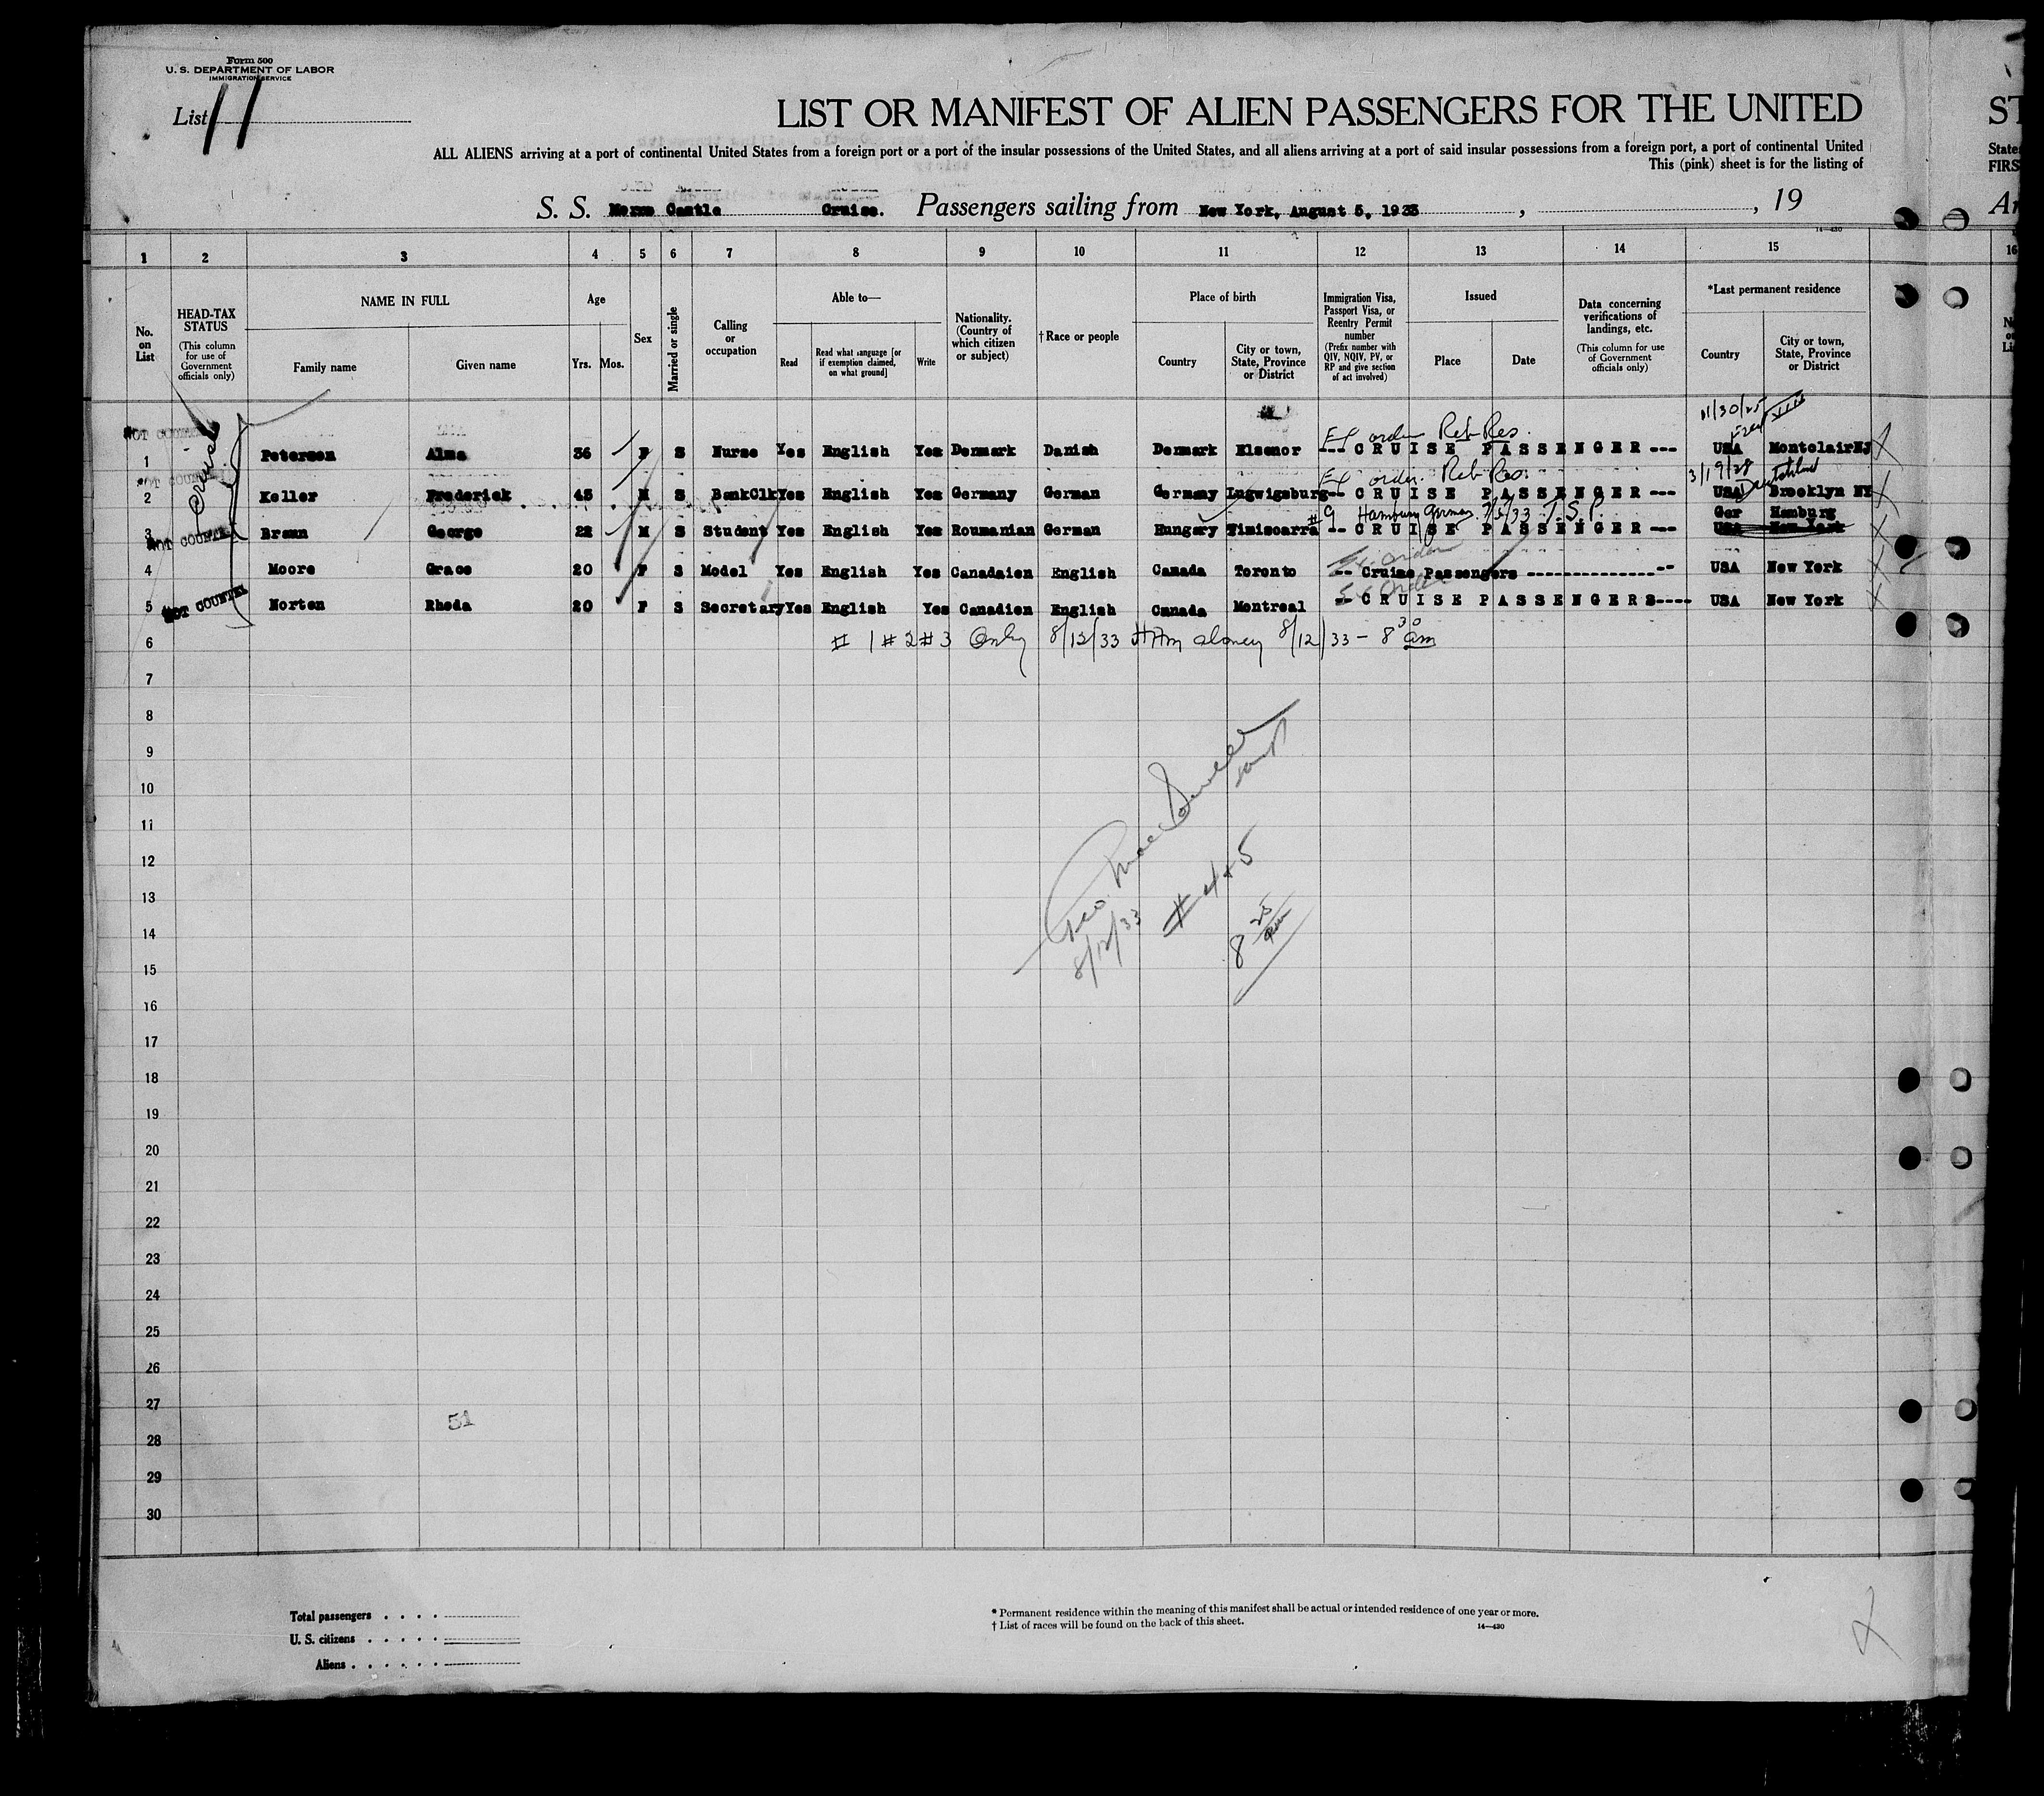 Form 500
U. S. DEPARTMENT OF LABOR
IMMIGRATION SERVICE
List 11
LIST OR MANIFEST OF ALIEN PASSENGERS FOR THE UNITED
ST
ALL ALIENS arriving at a port of continental United States from a foreign port or a port of the insular possessions of the United States, and all aliens arriving at a port of said insular possessions from a foreign port, a port of continental United
State
This (pink) sheet is for the listing of
FIRS
S. S. Morro Castle Cruise. Passengers sailing from New York, August 5, 1933 , , 19
Ar
14—430
1 2 3 4 5 6 7 8 9 10 11 12 13 14 15 16
No. on List
HEAD-TAX STATUS (This column for use of Government officials only)
NAME IN FULL Family name Given name
Age Yrs. Mos.
Sex
Married or single
Calling or occupation
Able to— Read Read what language [or if exemption claimed, on what ground] Write
Nationality. (Country of which citizen or subject)
†Race or people
Place of birth Country City or town, State, Province or District
Immigration Visa, Passport Visa, or Reentry Permit number (Prefix number with QIV, NQIV, PV, or RP and give section of act involved)
Issued Place Date
Data concerning verifications of landings, etc. (This column for use of Government officials only)
*Last permanent residence Country City or town, State, Province or District
Cruise
11/30/25
NOT COUNTED
Ex order Reb Res.
1 Petersen Alma 36 F S Nurse Yes English Yes Denmark Danish Denmark Elsenor --- CRUISE PASSENGER --- USA Montclair NJ
NOT COUNTED
Ex order. Reb Res. 3/19/28
2 Keller Frederick 43 M S BankClk Yes English Yes Germany German Germany Ludwigsburg -- CRUISE PASSENGER --- USA Brooklyn NY
#9 Hamburg German. 7/5/33 T.S.P. Ger Hamburg
3 NOT COUNTED Braun George 22 M S Student Yes English Yes Roumanian German Hungary Timisoarra -- CRUISE PASSENGER --- USA New York
Ex. Order
4 Moore Grace 20 F S Model Yes English Yes Canadaien English Canada Toronto -- Cruise Passengers ---------------- USA New York
Ex Order
5 NOT COUNTED Norton Rhoda 20 F S Secretary Yes English Yes Canadien English Canada Montreal -- CRUISE PASSENGERS---- USA New York
6 # 1 # 2 # 3 Only 8/12/33 8/12/33 - 8 30 am
7
8
9
10
11
12
13
14
15
16
17
18
19
20
21
22
23
24
25
26
27
28
29
30
8/12/33
# 4 + 5
8 25
51
Total passengers . . . .
U. S. citizens . . . . .
Aliens . . . . . .
* Permanent residence within the meaning of this manifest shall be actual or intended residence of one year or more.
† List of races will be found on the back of this sheet.
14—430